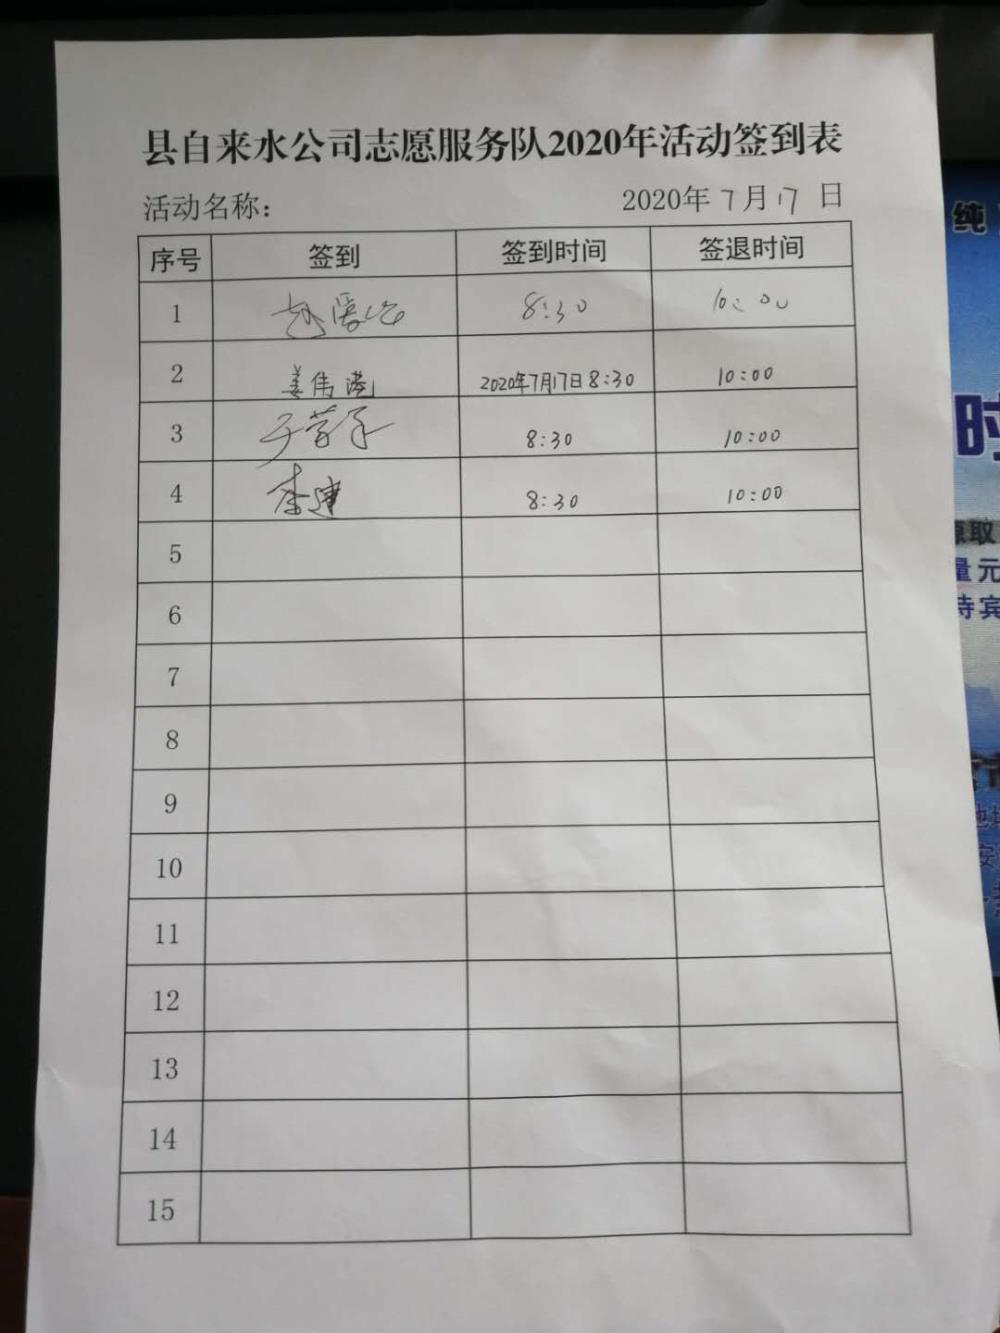 县自来水公司志愿服务队2020年活动签到表
活动名称： 2020年 7 月 17 日
序号 签到 签到时间 签退时间
1 8:30 10:00
2 姜伟港 2020年7月17日8:30 10:00
3 8:30 10:00
4 李建 8:30 10:00
5
6
7
8
9
10
11
12
13
14
15
纯
时
取
量元
待宾